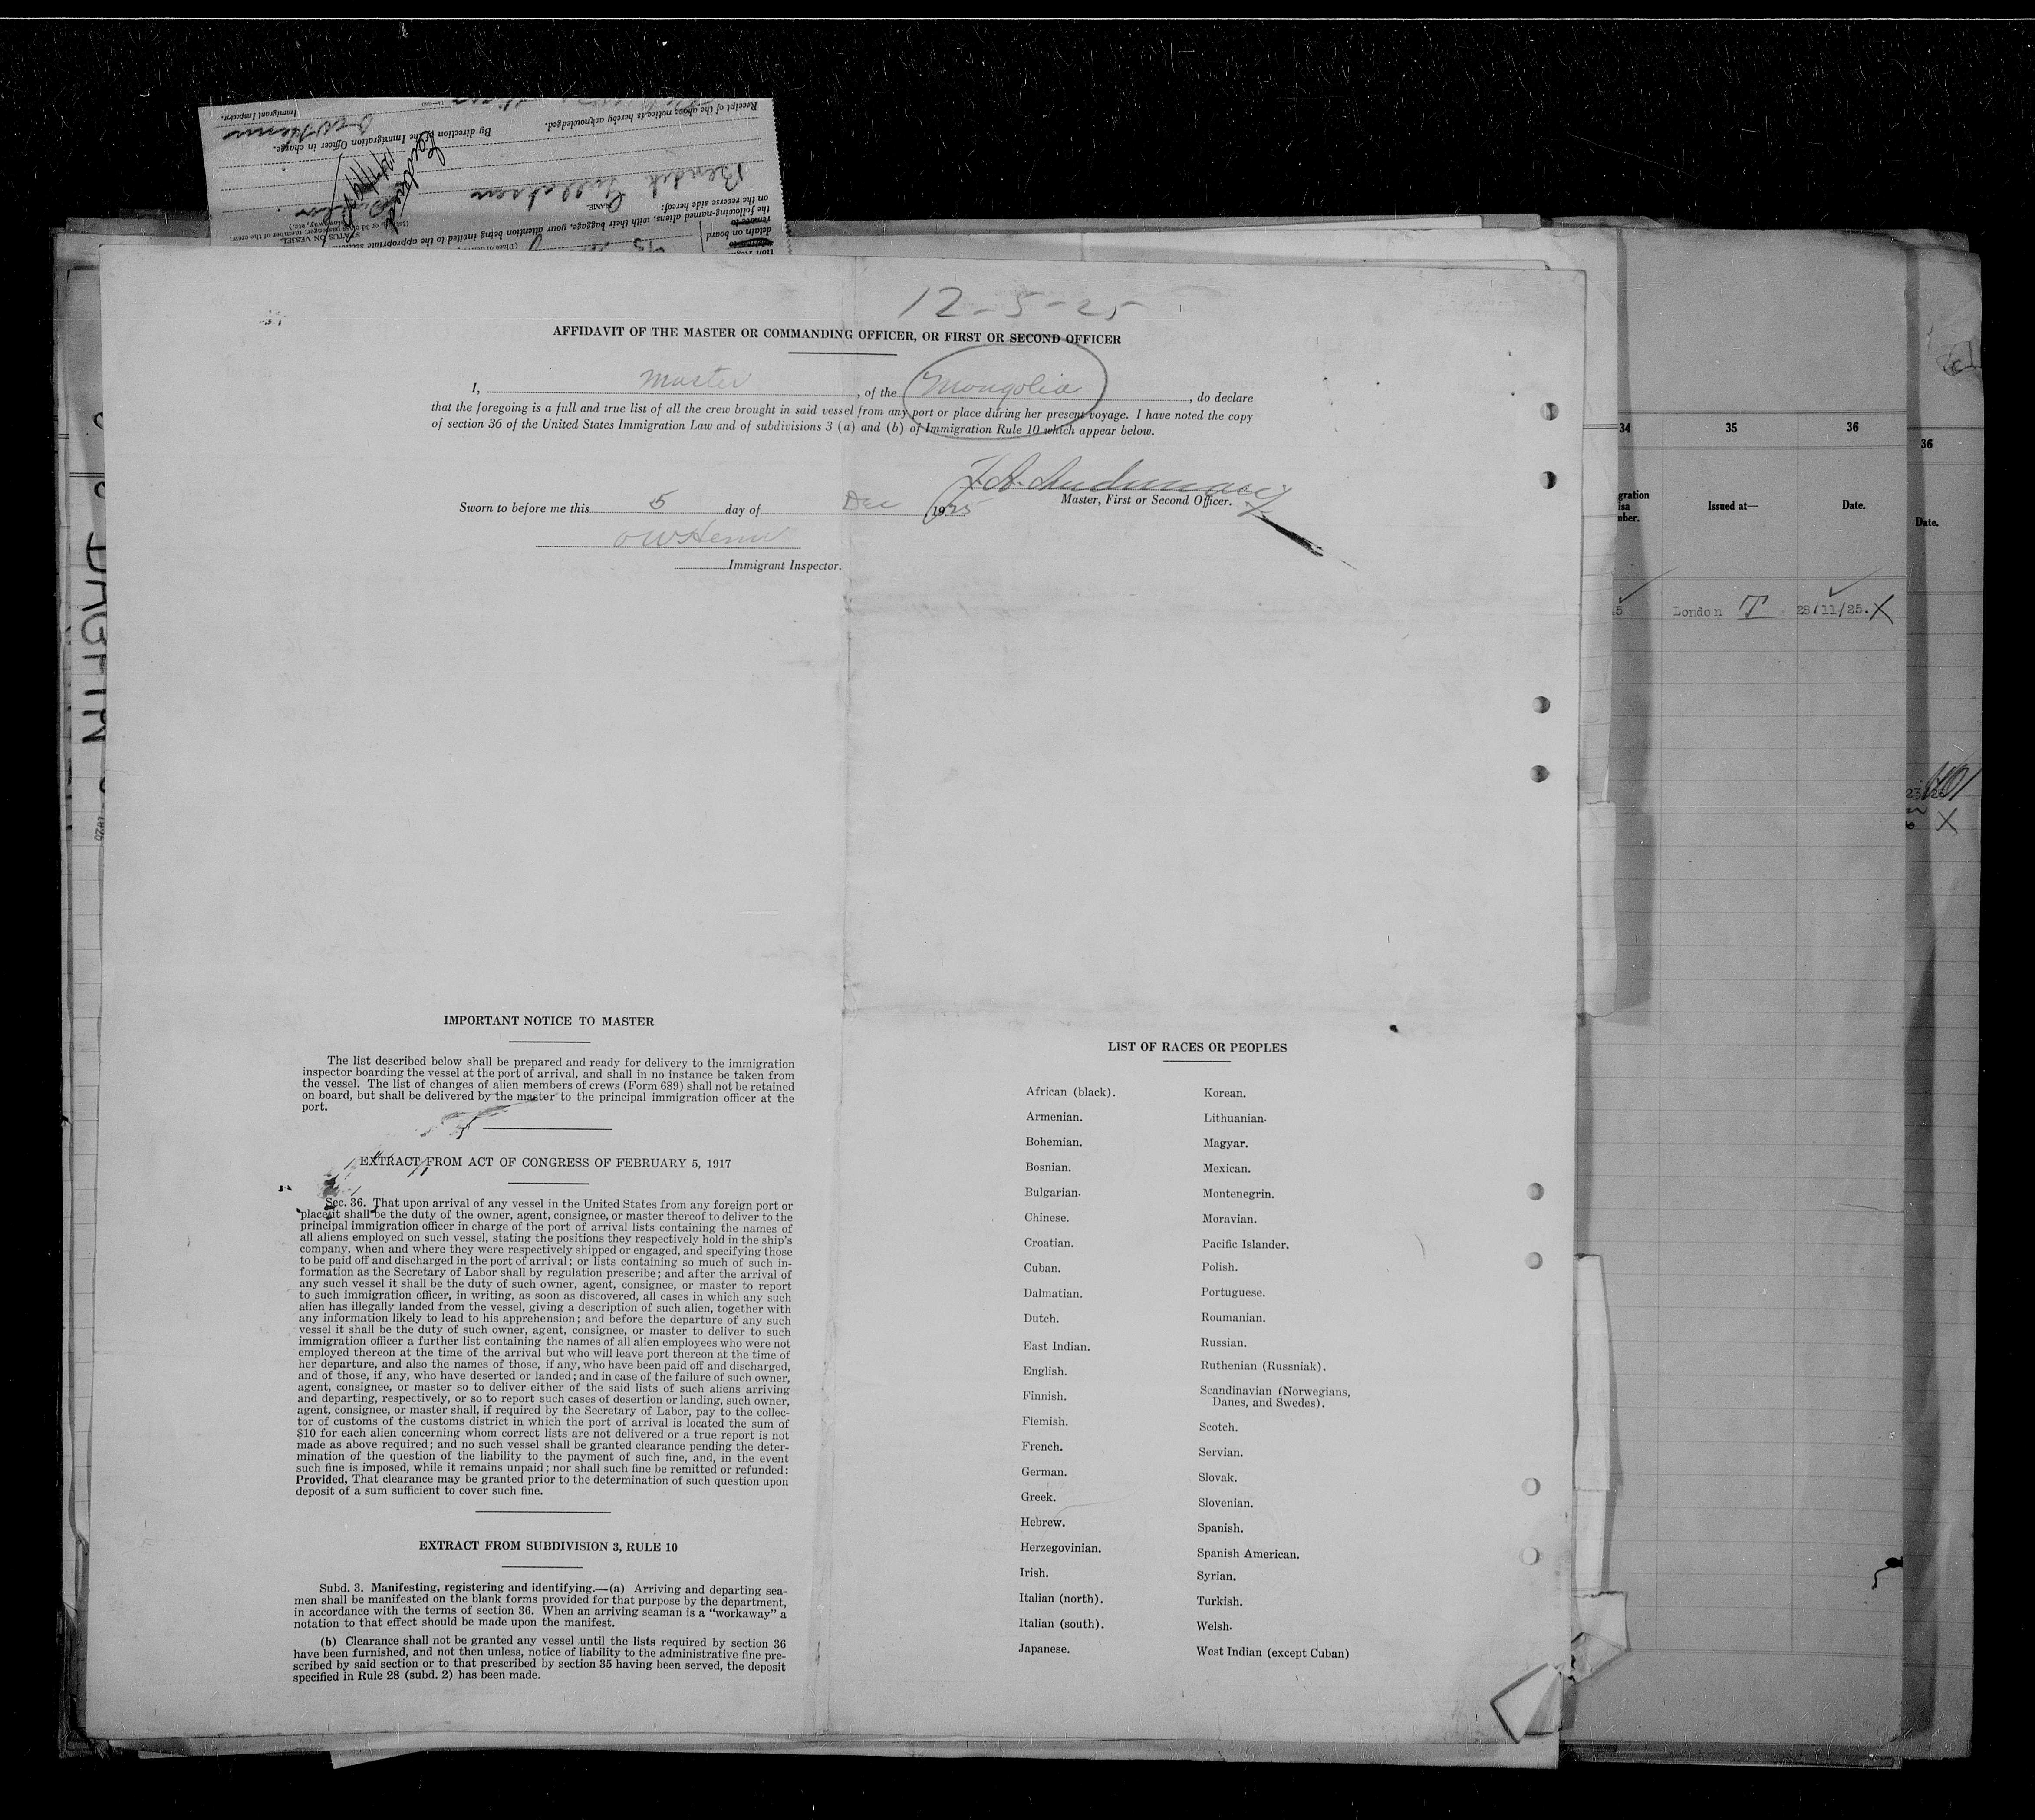 Receipt of the above notice is hereby acknowledged.
Immigrant Inspector.
By direction of the Immigration Officer in charge.
Bendik
NAME.
on the reverse side hereof:
the following-named aliens, with their baggage, your attention being invited to the appropriate
STATUS ON VESSEL
remove to
detain on board
12-5-25
AFFIDAVIT OF THE MASTER OR COMMANDING OFFICER, OR FIRST OR SECOND OFFICER
I, Master, of the Mongolia, do declare
that the foregoing is a full and true list of all the crew brought in said vessel from any port or place during her present voyage. I have noted the copy
of section 36 of the United States Immigration Law and of subdivisions 3 (a) and (b) of Immigration Rule 10 which appear below.
Master, First or Second Officer.
Sworn to before me this 5 day of Dec, 1925
Immigrant Inspector.
IMPORTANT NOTICE TO MASTER
The list described below shall be prepared and ready for delivery to the immigration
inspector boarding the vessel at the port of arrival, and shall in no instance be taken from
the vessel. The list of changes of alien members of crews (Form 689) shall not be retained
on board, but shall be delivered by the master to the principal immigration officer at the
port.
EXTRACT FROM ACT OF CONGRESS OF FEBRUARY 5, 1917
Sec. 36. That upon arrival of any vessel in the United States from any foreign port or
place it shall be the duty of the owner, agent, consignee, or master thereof to deliver to the
principal immigration officer in charge of the port of arrival lists containing the names of
all aliens employed on such vessel, stating the positions they respectively hold in the ship's
company, when and where they were respectively shipped or engaged, and specifying those
to be paid off and discharged in the port of arrival; or lists containing so much of such in-
formation as the Secretary of Labor shall by regulation prescribe; and after the arrival of
any such vessel it shall be the duty of such owner, agent, consignee, or master to report
to such immigration officer, in writing, as soon as discovered, all cases in which any such
alien has illegally landed from the vessel, giving a description of such alien, together with
any information likely to lead to his apprehension; and before the departure of any such
vessel it shall be the duty of such owner, agent, consignee, or master to deliver to such
immigration officer a further list containing the names of all alien employees who were not
employed thereon at the time of the arrival but who will leave port thereon at the time of
her departure, and also the names of those, if any, who have been paid off and discharged,
and of those, if any, who have deserted or landed; and in case of the failure of such owner,
agent, consignee, or master so to deliver either of the said lists of such aliens arriving
and departing, respectively, or so to report such cases of desertion or landing, such owner,
agent, consignee, or master shall, if required by the Secretary of Labor, pay to the collec-
tor of customs of the customs district in which the port of arrival is located the sum of
$10 for each alien concerning whom correct lists are not delivered or a true report is not
made as above required; and no such vessel shall be granted clearance pending the deter-
mination of the question of the liability to the payment of such fine, and, in the event
such fine is imposed, while it remains unpaid; nor shall such fine be remitted or refunded:
Provided, That clearance may be granted prior to the determination of such question upon
deposit of a sum sufficient to cover such fine.
EXTRACT FROM SUBDIVISION 3, RULE 10
Subd. 3. Manifesting, registering and identifying.—(a) Arriving and departing sea-
men shall be manifested on the blank forms provided for that purpose by the department,
in accordance with the terms of section 36. When an arriving seaman is a "workaway" a
notation to that effect should be made upon the manifest.
(b) Clearance shall not be granted any vessel until the lists required by section 36
have been furnished, and not then unless, notice of liability to the administrative fine pre-
scribed by said section or to that prescribed by section 35 having been served, the deposit
specified in Rule 28 (subd. 2) has been made.
LIST OF RACES OR PEOPLES
African (black).
Armenian.
Bohemian.
Bosnian.
Bulgarian.
Chinese.
Croatian.
Cuban.
Dalmatian.
Dutch.
East Indian.
English.
Finnish.
Flemish.
French.
German.
Greek.
Hebrew.
Herzegovinian.
Irish.
Italian (north).
Italian (south).
Japanese.
Korean.
Lithuanian.
Magyar.
Mexican.
Montenegrin.
Moravian.
Pacific Islander.
Polish.
Portuguese.
Roumanian.
Russian.
Ruthenian (Russniak).
Scandinavian (Norwegians,
Danes, and Swedes).
Scotch.
Servian.
Slovak.
Slovenian.
Spanish.
Spanish American.
Syrian.
Turkish.
Welsh.
West Indian (except Cuban)
34 35 36
Issued at— Date.
5 London T 28/11/25. X
36
Date.
X